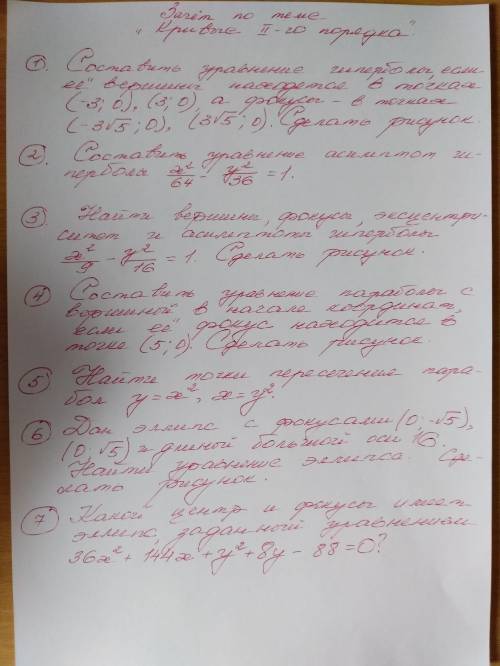 Зачёт по теме
"Кривые II-го порядка".
① Составить уравнение гиперболы, если
её вершины находятся в точках
(-3; 0), (3; 0), а фокусы - в точках
(-3√5; 0), (3√5; 0). Сделать рисунок.
② Составить уравнение асимптот ги-
перболы x²/64 - y²/36 = 1.
③ Найти вершины, фокусы, эксцентри-
ситет и асимптоты гиперболы
x²/9 - y²/16 = 1. Сделать рисунок.
④ Составить уравнение параболы с
вершиной в начале координат,
если её фокус находится в
точке (5; 0). Сделать рисунок.
⑤ Найти точки пересечения пара-
бол y = x², x = y².
⑥ Дан эллипс с фокусами (0; -√5),
(0; √5) и длиной большой оси 16.
Найти уравнение эллипса. Сде-
лать рисунок.
⑦ Какой центр и фокусы имеет
эллипс, заданный уравнением
36x² + 144x + y² + 8y - 88 = 0?